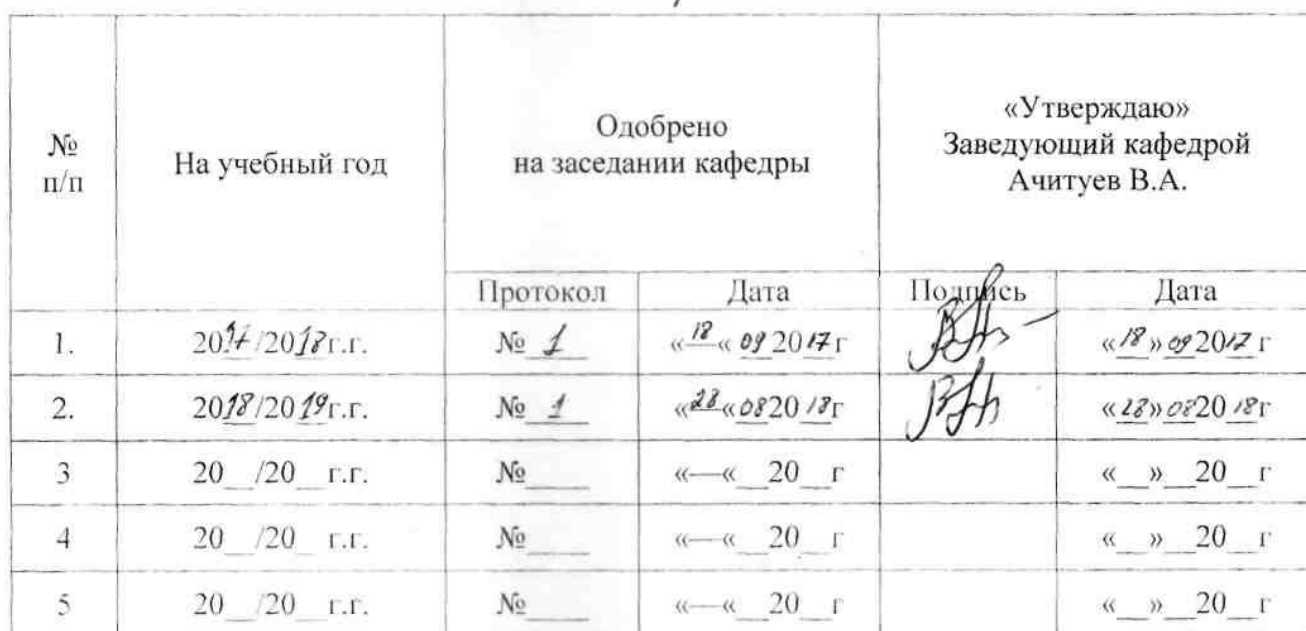 №
п/п
На учебный год
Одобрено
на заседании кафедры
«Утверждаю»
Заведующий кафедрой
Ачитуев В.А.
Протокол
Дата
Подпись
Дата
1. 2017/2018г.г. № 1 «18« 09 2017г «18» 09 2017 г
2. 2018/2019г.г. № 1 «28« 08 2018г «28» 08 2018г
3 20__/20__ г.г. №____ «—«__20__г «__»__20__г
4 20__/20_ г.г. №____ «—«__20__г «__»__20__г
5 20__/20__ г.г. №____ «—«__20__г «__»__20__г